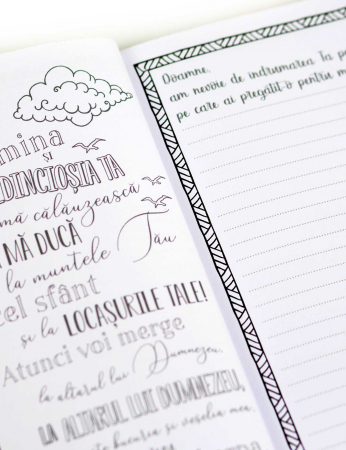 mina
ȘI
DINCIOȘIA TA
mă călăuzească
MĂ DUCĂ
la muntele Tău
cel sfânt
și la LOCAȘURILE TALE!
Atunci voi merge
la altarul lui Dumnezeu,
LA ALTARUL LUI DUMNEZEU,
bucuria și veselia mea,
Doamne,
am nevoie de îndrumarea Ta p
pe care ai pregătit-o pentru m